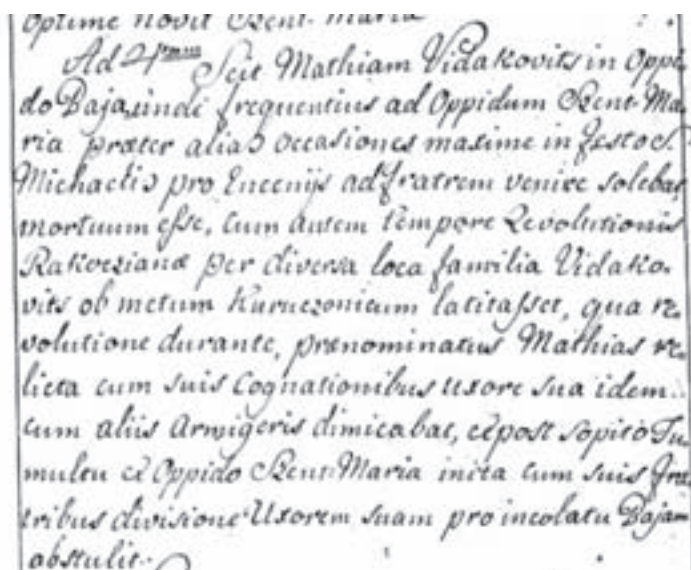 optime novit Szent-Maria
Ad 4tum Scit Mathiam Vidakovits in Oppi-
do Baja, undè frequentius ad Oppidum Szent-Ma-
ria præter alias occasiones maxime in festo S.
Michaelis pro Encenijs ad fratrem venire solebat,
mortuum esse, cum autem tempore Revolutionis
Rakoczianæ per diversa loca familia Vidako-
vits ob metum Kuruczonicum latitasset, qua re-
volutione durante, prænominatus Mathias re-
licta cum suis Cognationibus uxore sua idem
cum aliis Armigeris dimicabat, et post sopito Tu-
multu èt Oppido Szent-Maria inita cum suis fra-
tribus divisione Uxorem suam pro incolatu Bajam
abstulit.